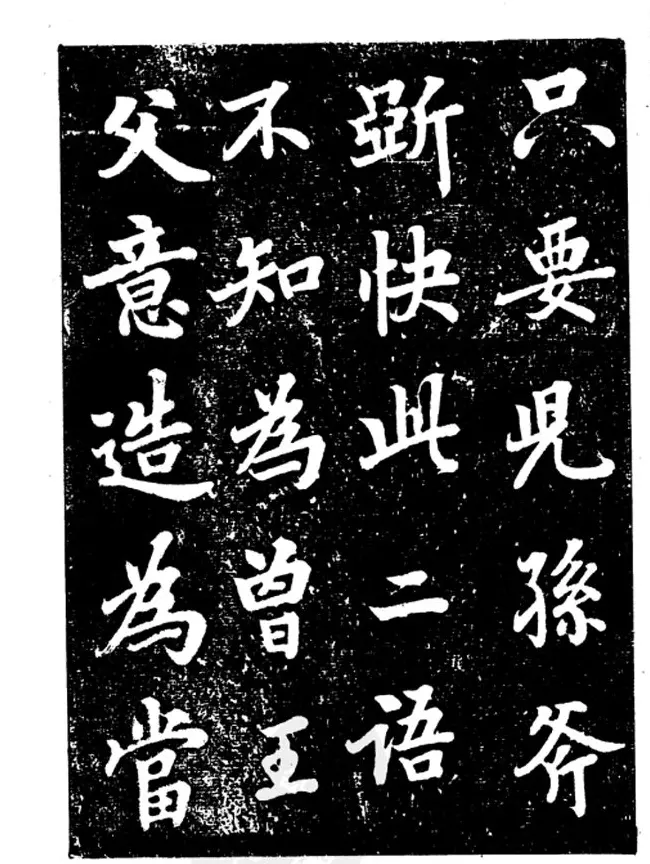 只要児孫斧
斲快此二语
不知為曾王
父意造為當